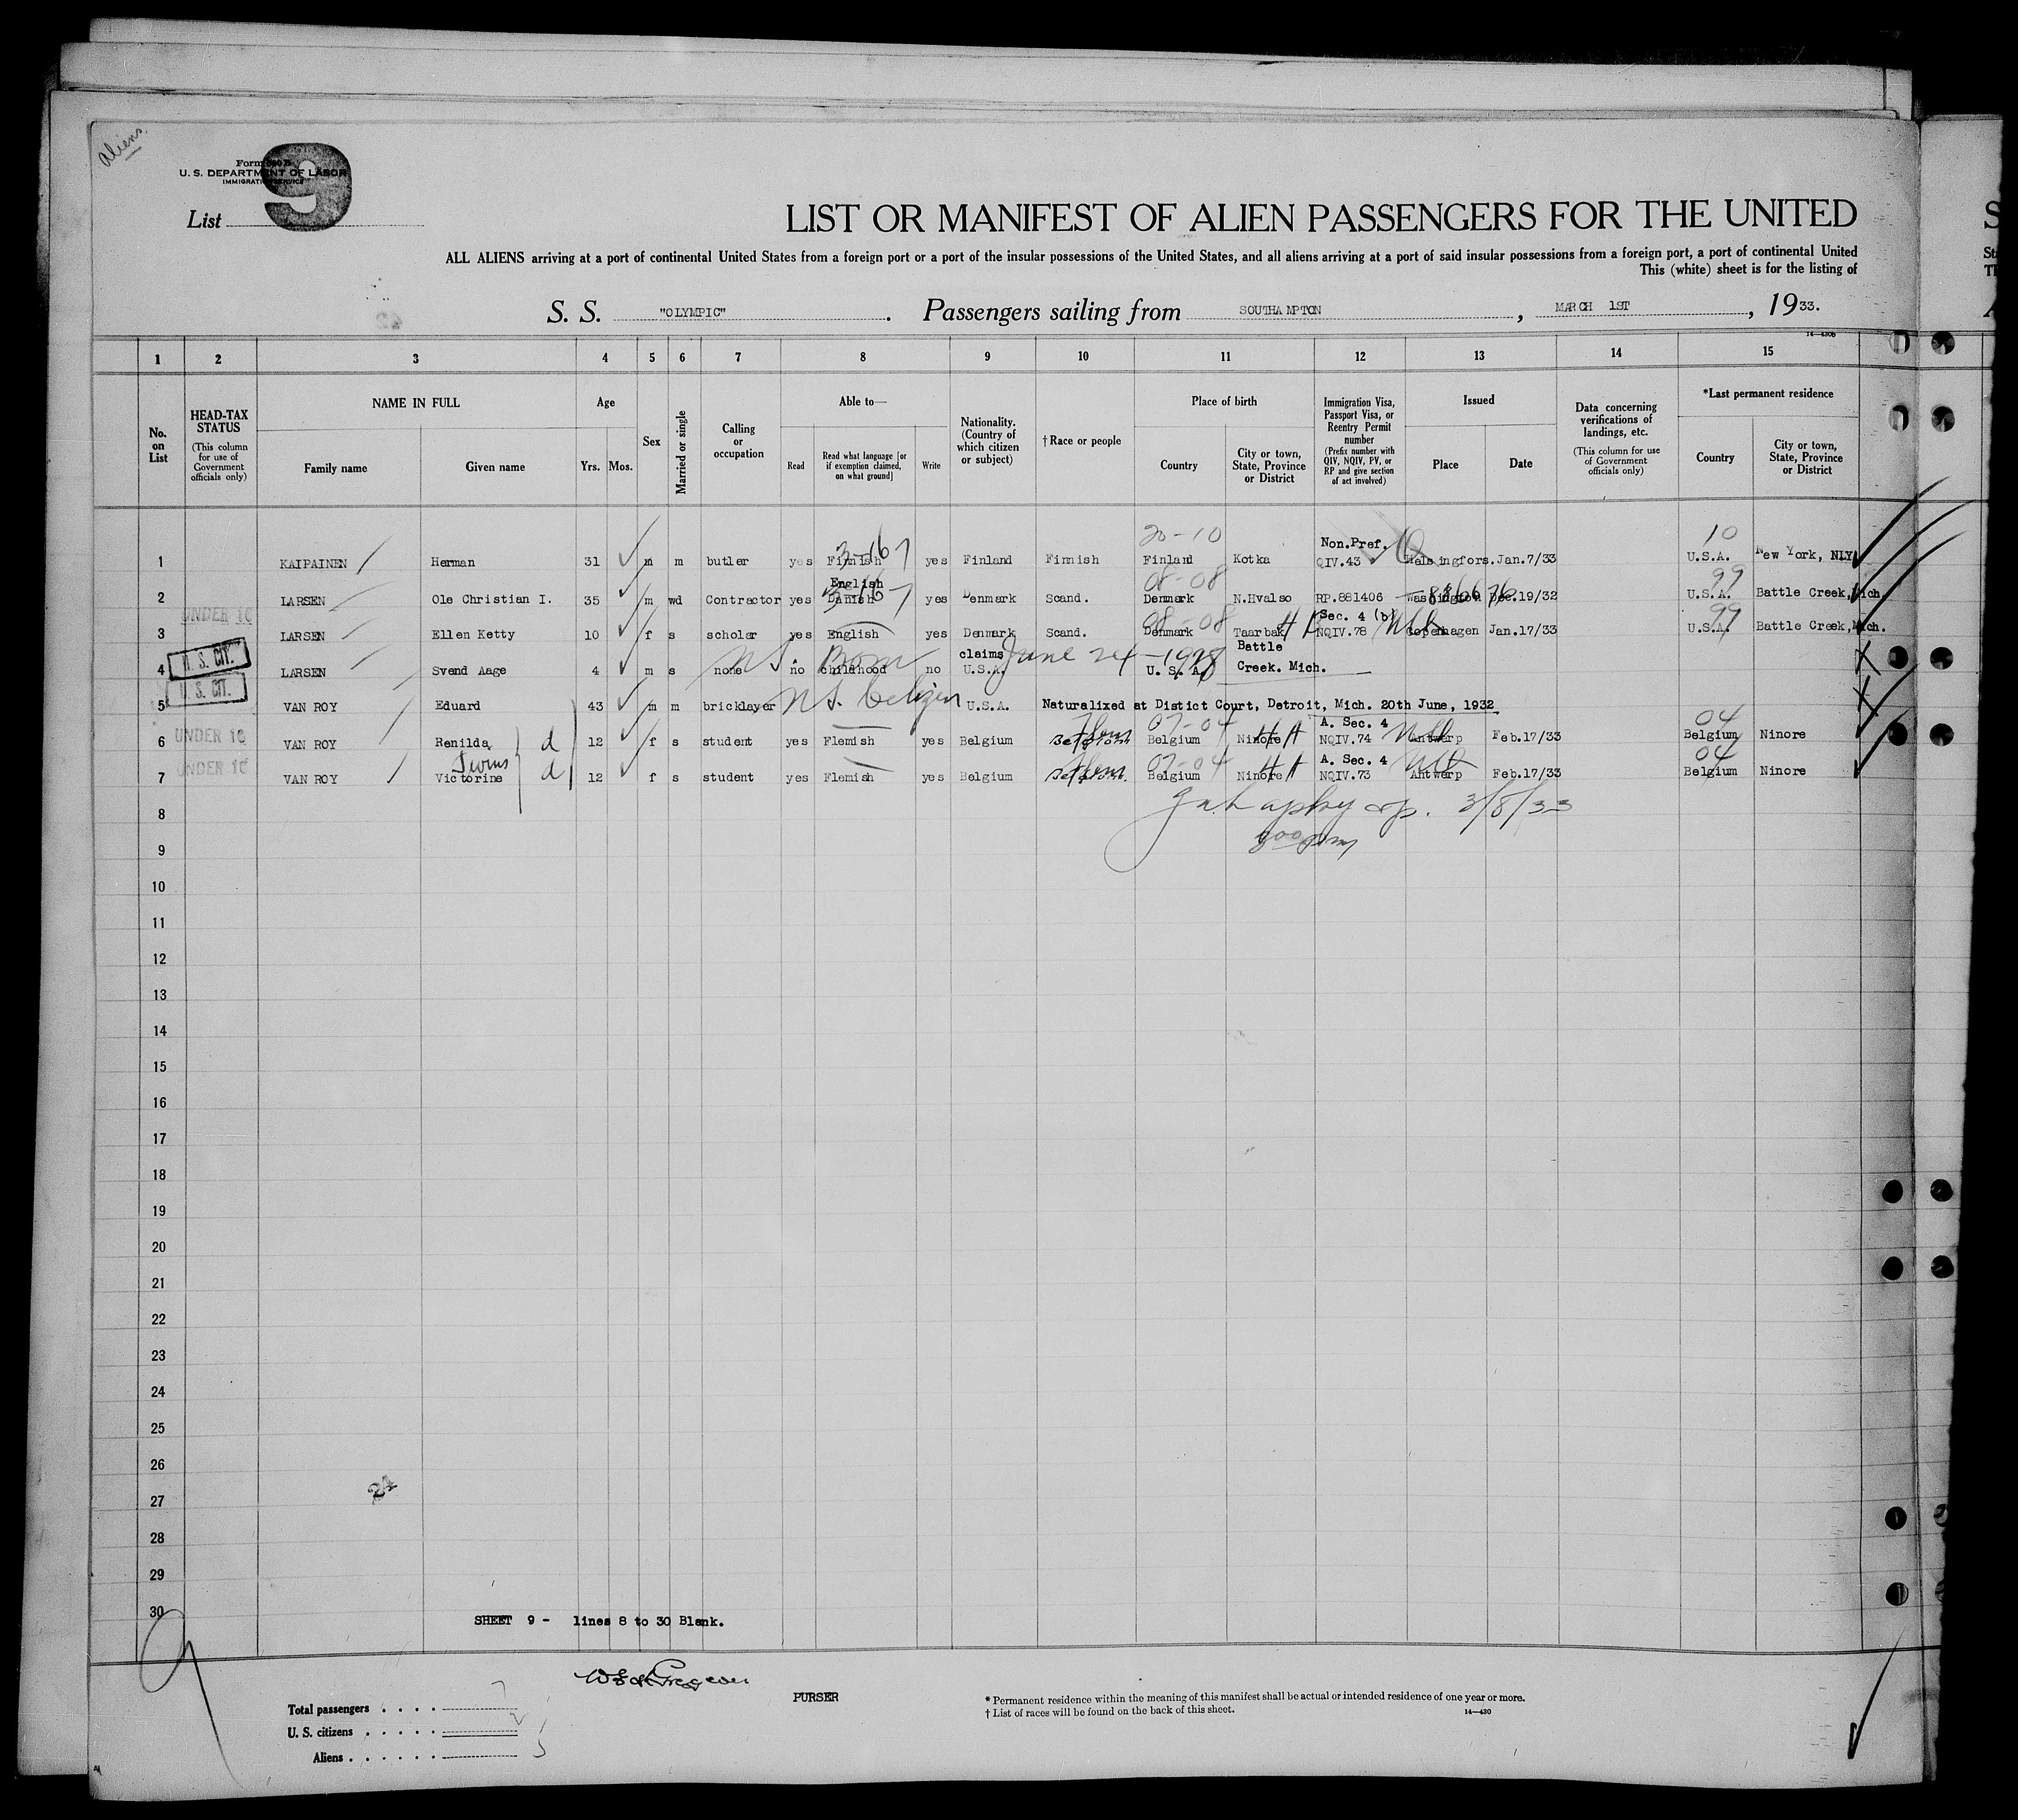 Aliens
Form 500 B
U. S. DEPARTMENT OF LABOR
IMMIGRATION SERVICE
9
List
LIST OR MANIFEST OF ALIEN PASSENGERS FOR THE UNITED
ALL ALIENS arriving at a port of continental United States from a foreign port or a port of the insular possessions of the United States, and all aliens arriving at a port of said insular possessions from a foreign port, a port of continental United
This (white) sheet is for the listing of
S. S. "OLYMPIC". Passengers sailing from SOUTHAMPTON, MARCH 1ST, 1933.
1 2 3 4 5 6 7 8 9 10 11 12 13 14 15
No. on List
HEAD-TAX STATUS (This column for use of Government officials only)
NAME IN FULL
Family name Given name
Age
Yrs. Mos.
Sex
Married or single
Calling or occupation
Able to—
Read Read what language [or if exemption claimed, on what ground] Write
Nationality. (Country of which citizen or subject)
† Race or people
Place of birth
Country City or town, State, Province or District
Immigration Visa, Passport Visa, or Reentry Permit number (Prefix number with QIV, NQIV, PV, or RP and give section of act involved)
Issued
Place Date
Data concerning verifications of landings, etc. (This column for use of Government officials only)
*Last permanent residence
Country City or town, State, Province or District
20-10 Non.Pref. 10
1 KAIPAINEN Herman 31 m m butler yes Finnish yes Finland Finnish Finland Kotka QIV.43 Helsingfors. Jan.7/33 U.S.A. New York, NLY
English 08-08 99
2 LARSEN Ole Christian I. 35 m wd Contractor yes Danish yes Denmark Scand. Denmark N.Hvalso RP.881406 Washington Dec.19/32 U.S.A. Battle Creek, Mich.
UNDER 16 08-08 Sec. 4 (b) 99
3 LARSEN Ellen Ketty 10 f s scholar yes English yes Denmark Scand. Denmark Taarbak NQIV.78 Copenhagen Jan.17/33 U.S.A. Battle Creek, Mich.
U. S. CIT. U.S. Born claims June 24-1928 Battle
4 LARSEN Svend Aage 4 m s none no childhood no U.S.A. U.S.A. Creek. Mich.
U. S. CIT.
5 VAN ROY Eduard 43 m m bricklayer U.S. Citizen U.S.A. Naturalixed at Distict Court, Detroit, Mich. 20th June, 1932
UNDER 16 Flem 07-04 A. Sec. 4 04
6 VAN ROY Renilda d 12 f s student yes Flemish yes Belgium Belgium Ninore NQIV.74 Antwerp Feb.17/33 Belgium Ninore
UNDER 16 Twins Flem. 07-04 A. Sec. 4 04
7 VAN ROY Victorine d 12 f s student yes Flemish yes Belgium Belgium Ninore NQIV.73 Antwerp Feb.17/33 Belgium Ninore
8 3/8/33
9
10
11
12
13
14
15
16
17
18
19
20
21
22
23
24
25
26
27 24
28
29
30
SHEET 9 - lines 8 to 30 Blank.
9
PURSER
Total passengers 7
U. S. citizens 2
Aliens 5
* Permanent residence within the meaning of this manifest shall be actual or intended residence of one year or more.
† List of races will be found on the back of this sheet.
14—430